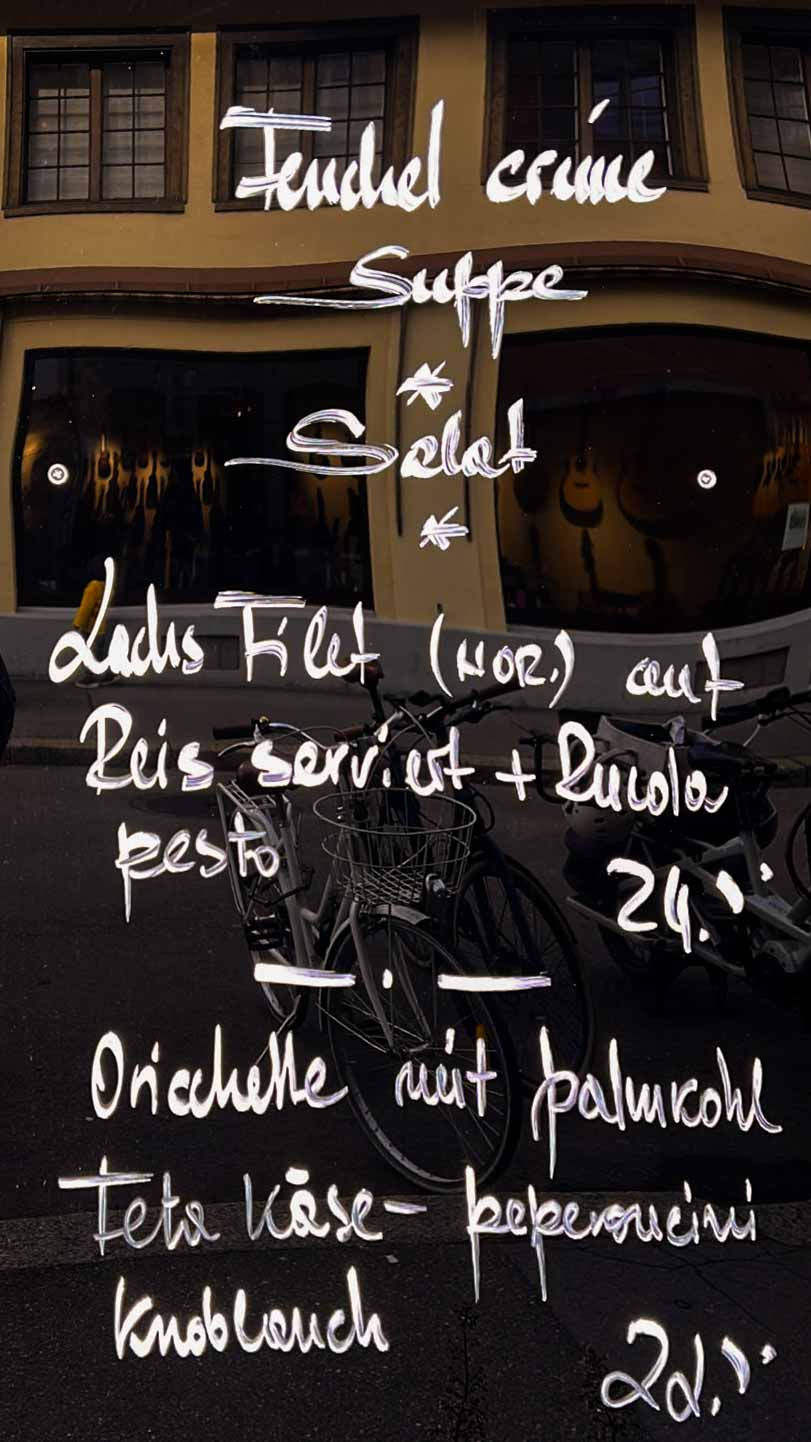 Fenchel crème
Suppe
*
Salat
*
Lachs Filet (NOR.) auf
Reis serviert + Rucola
pesto
24.--
— . —
Oricchette mit palmkohl
Feta Käse - peperoncini
Knoblauch
22.--